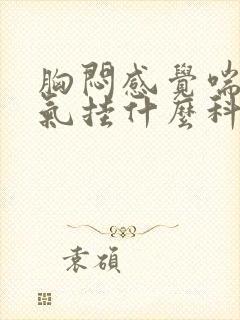 胸悶感覺喘
氣挂什麼科
袁碩